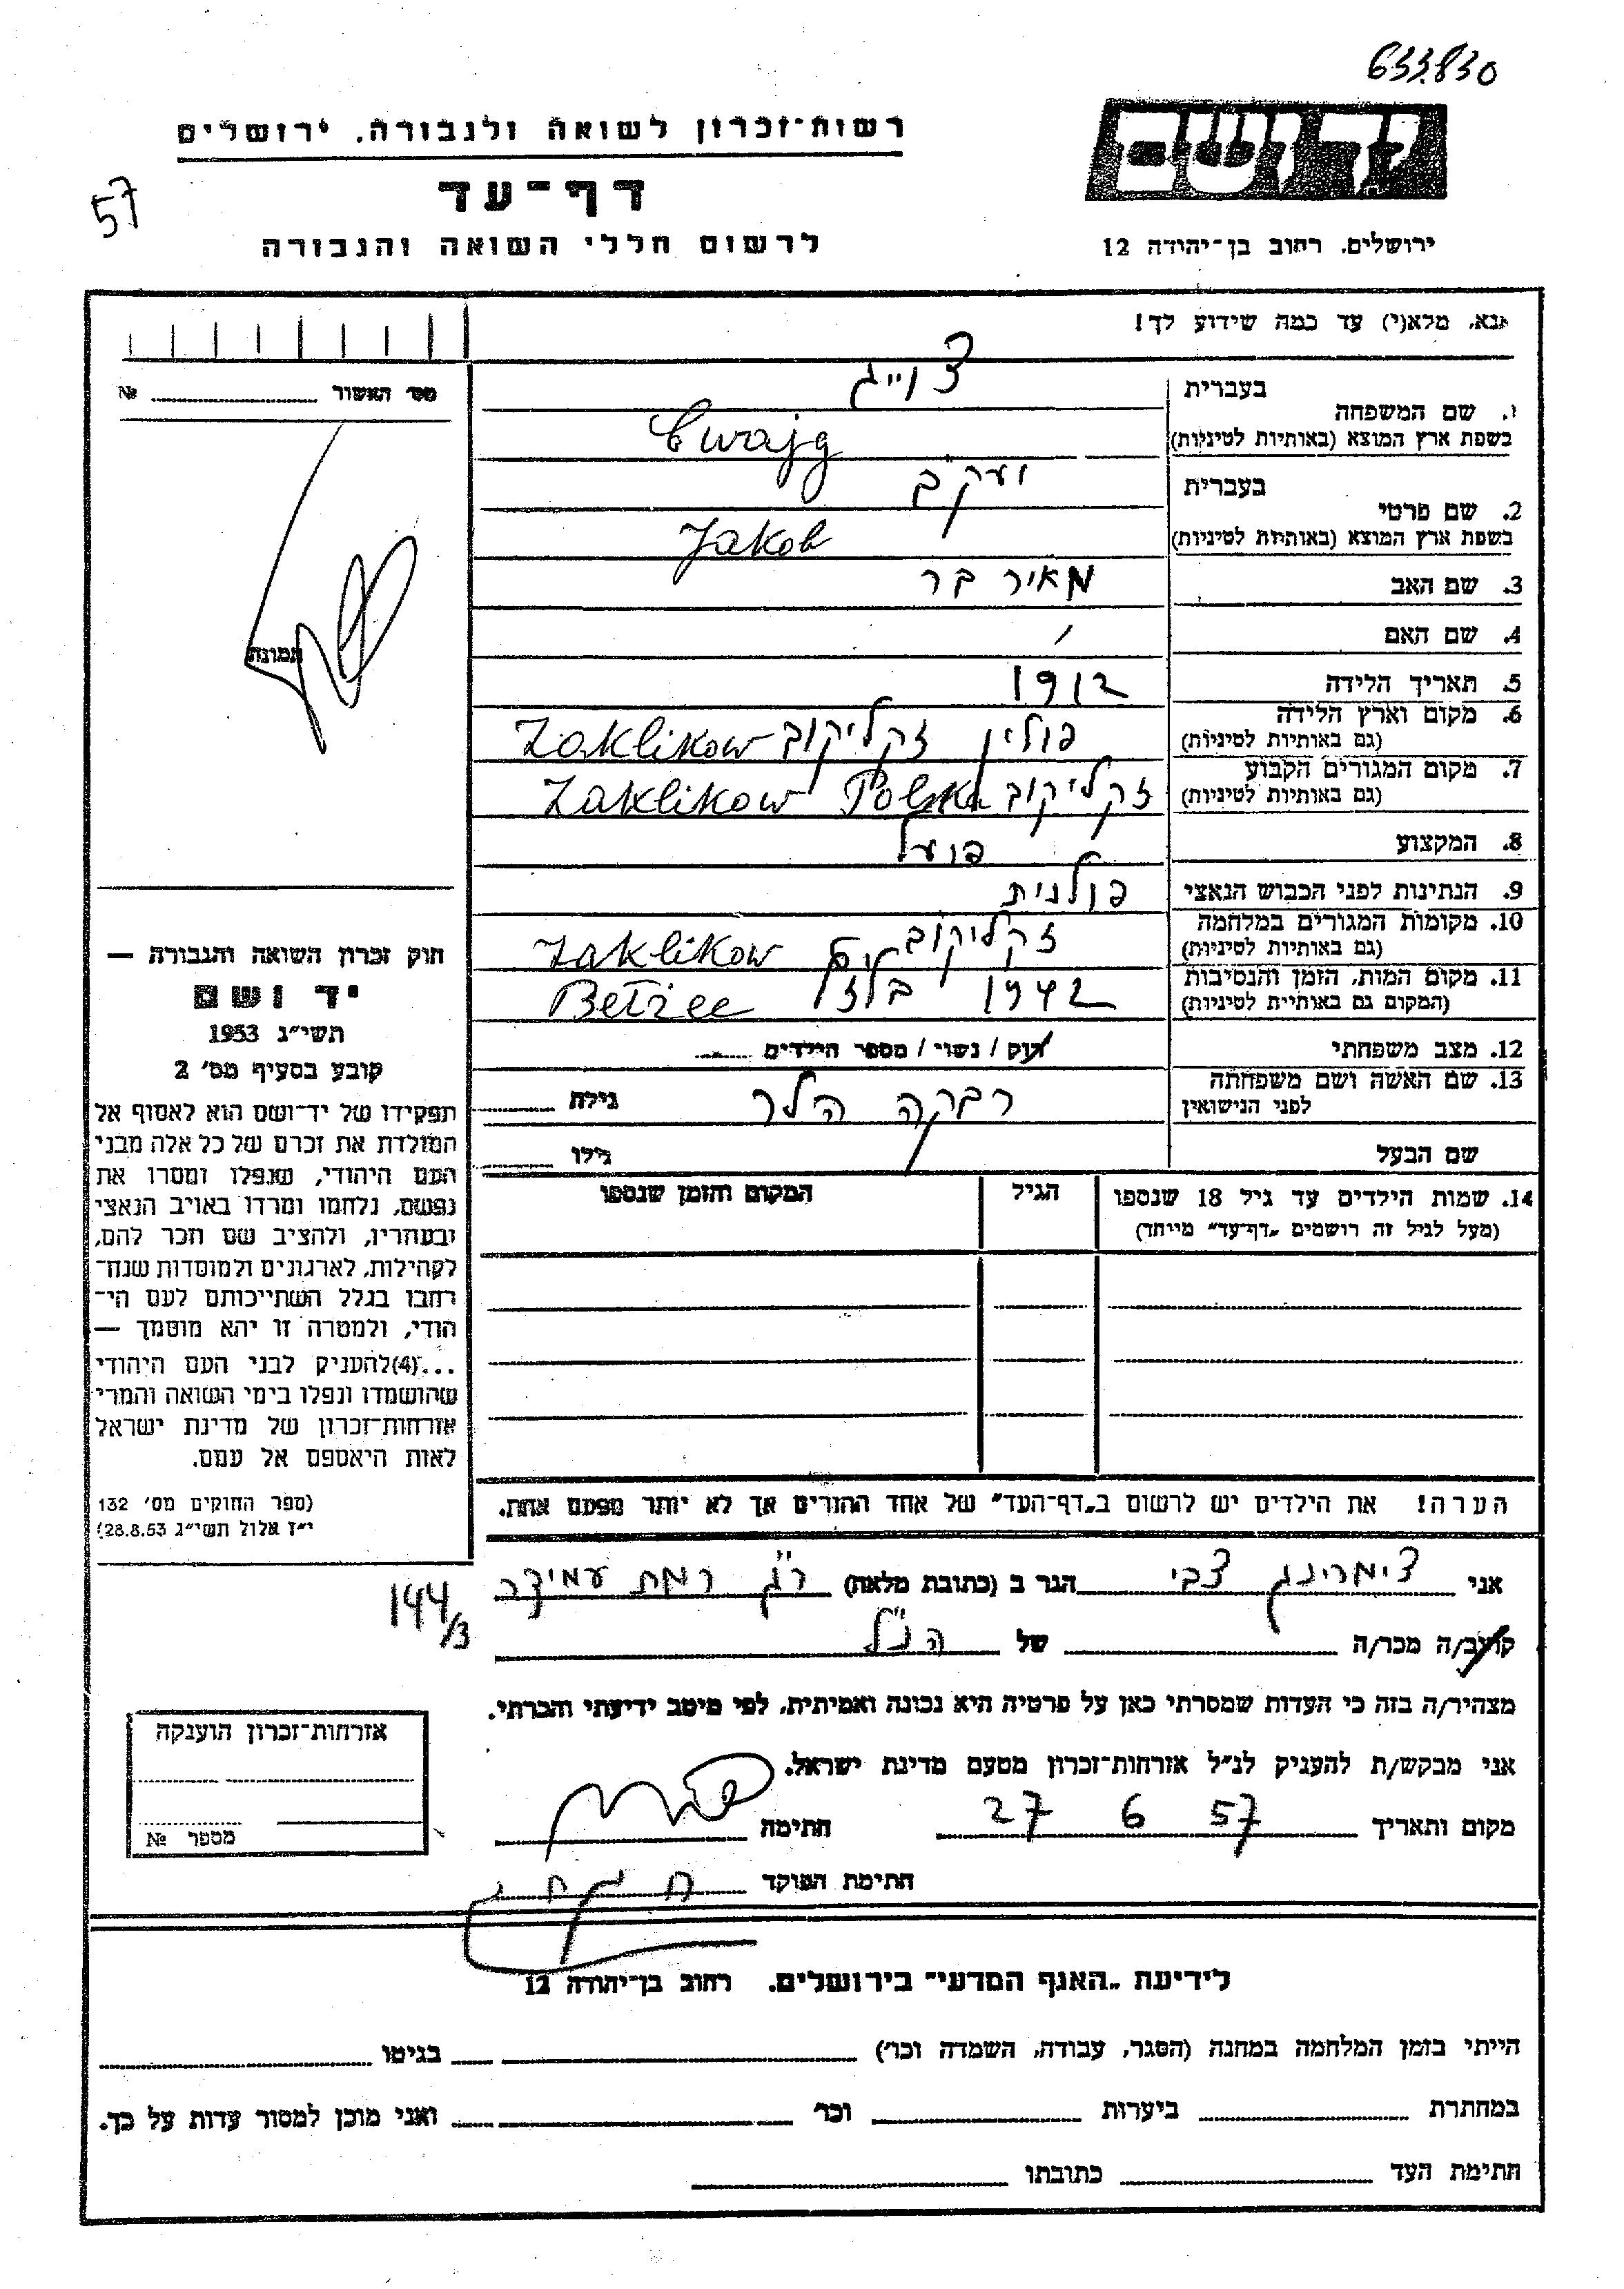 633.830
רשות-זכרון לשואה ולגבורה. ירושלים
דף-עד
לרשום חללי השואה והגבורה
57
יד ושם
ירושלים, רחוב בן-יהודה 12
אנא, מלא(י) עד כמה שידוע לך!
מס' האשור № ........
תמונה
בעברית צוייג
1. שם המשפחה
בשפת ארץ המוצא (באותיות לטיניות) Cwajg
בעברית יעקב
2. שם פרטי
בשפת ארץ המוצא (באותיות לטיניות) Jakob
3. שם האב מאיר בר
4. שם האם /
5. תאריך הלידה 1912
6. מקום וארץ הלידה פולין זקליקוב Zaklikow
(גם באותיות לטיניות)
7. מקום המגורים הקבוע זקליקוב Zaklikow Polska
(גם באותיות לטיניות)
8. המקצוע פועל
9. הנתינות לפני הכבוש הנאצי פולנית
10. מקומות המגורים במלחמה זקליקוב Zaklikow
(גם באותיות לטיניות)
11. מקום המות, הזמן והנסיבות 1942 Betzec
(המקום גם באותיות לטיניות)
12. מצב משפחתי רוק / נשוי / מספר הילדים ........
13. שם האשה ושם משפחתה רבקה הלר גילה ........
לפני הנישואין
שם הבעל גילו ........
14. שמות הילדים עד גיל 18 שנספו הגיל המקום והזמן שנספו
(מעל לגיל זה רושמים „דף-עד" מיוחד)
הערה! את הילדים יש לרשום ב„דף-העד" של אחד ההורים אך לא יותר מפעם אחת.
חוק זכרון השואה והגבורה —
יד ושם
תשי״ג 1953
קובע בסעיף מס' 2
תפקידו של יד-ושם הוא לאסוף אל
המולדת את זכרם של כל אלה מבני
העם היהודי, שנפלו ומסרו את
נפשם, נלחמו ומרדו באויב הנאצי
ובעוזריו, ולהציב שם וזכר להם,
לקהילות, לארגונים ולמוסדות שנח-
רבו בגלל השתייכותם לעם הי-
הודי, ולמטרה זו יהא מוסמך —
...(4)להעניק לבני העם היהודי
שהושמדו ונפלו בימי השואה והמרי
אזרחות-זכרון של מדינת ישראל
לאות היאספם אל עמם.
(ספר החוקים מס' 132
י״ז אלול תשי״ג 28.8.53)
אני צימרינג צבי הגר ב (כתובת מלאה) ר״ג רמת עמידר
144/3
קרוב/ה מכר/ה ........ של הנ״ל
מצהיר/ה בזה כי העדות שמסרתי כאן על פרטיה היא נכונה ואמיתית, לפי מיטב ידיעתי והכרתי.
אני מבקש/ת להעניק לנ״ל אזרחות-זכרון מטעם מדינת ישראל.
מקום ותאריך 27 6 57 חתימה
חתימת הפוקד
אזרחות-זכרון הוענקה
מספר №
לידיעת „האגף המדעי" בירושלים. רחוב בן-יהודה 12
הייתי בזמן המלחמה במחנה (הסגר, עבודה, השמדה וכר') ........ בגיטו ........
במחתרת ........ ביערות ........ וכר' ........ ואני מוכן למסור עדות על כך.
חתימת העד ........ כתובתו ........